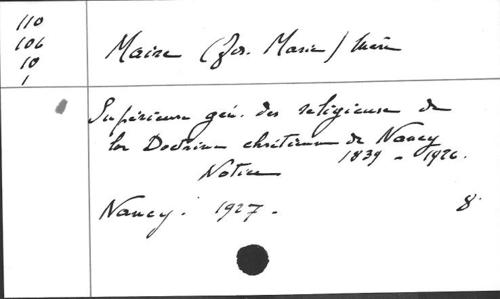 110
106
10
1
Maire (Jos. Marie) Mère
Supérieure gén. des religieuse de
la Doctrine chrétienne de Nancy
1839 - 1926.
Notice
Nancy. 1927. 8°